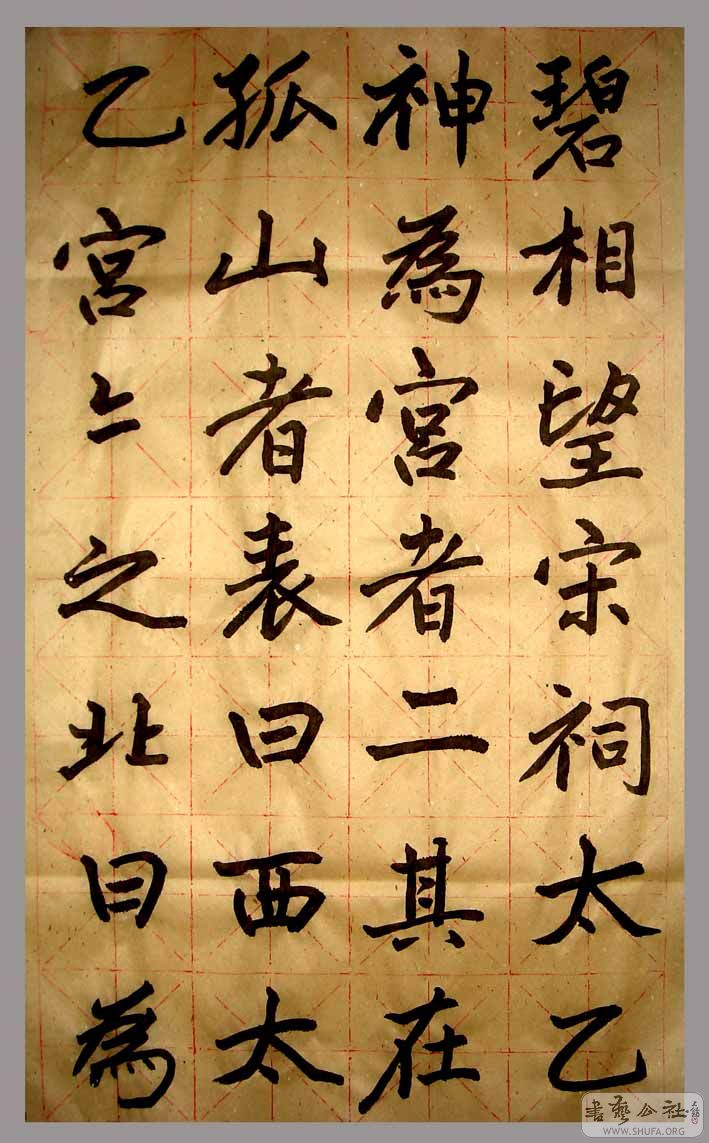 碧相望宋祠太乙
神為宮者二其在
孤山者表曰西太
乙宮々之北曰為
書藝公社
WWW.SHUFA.ORG